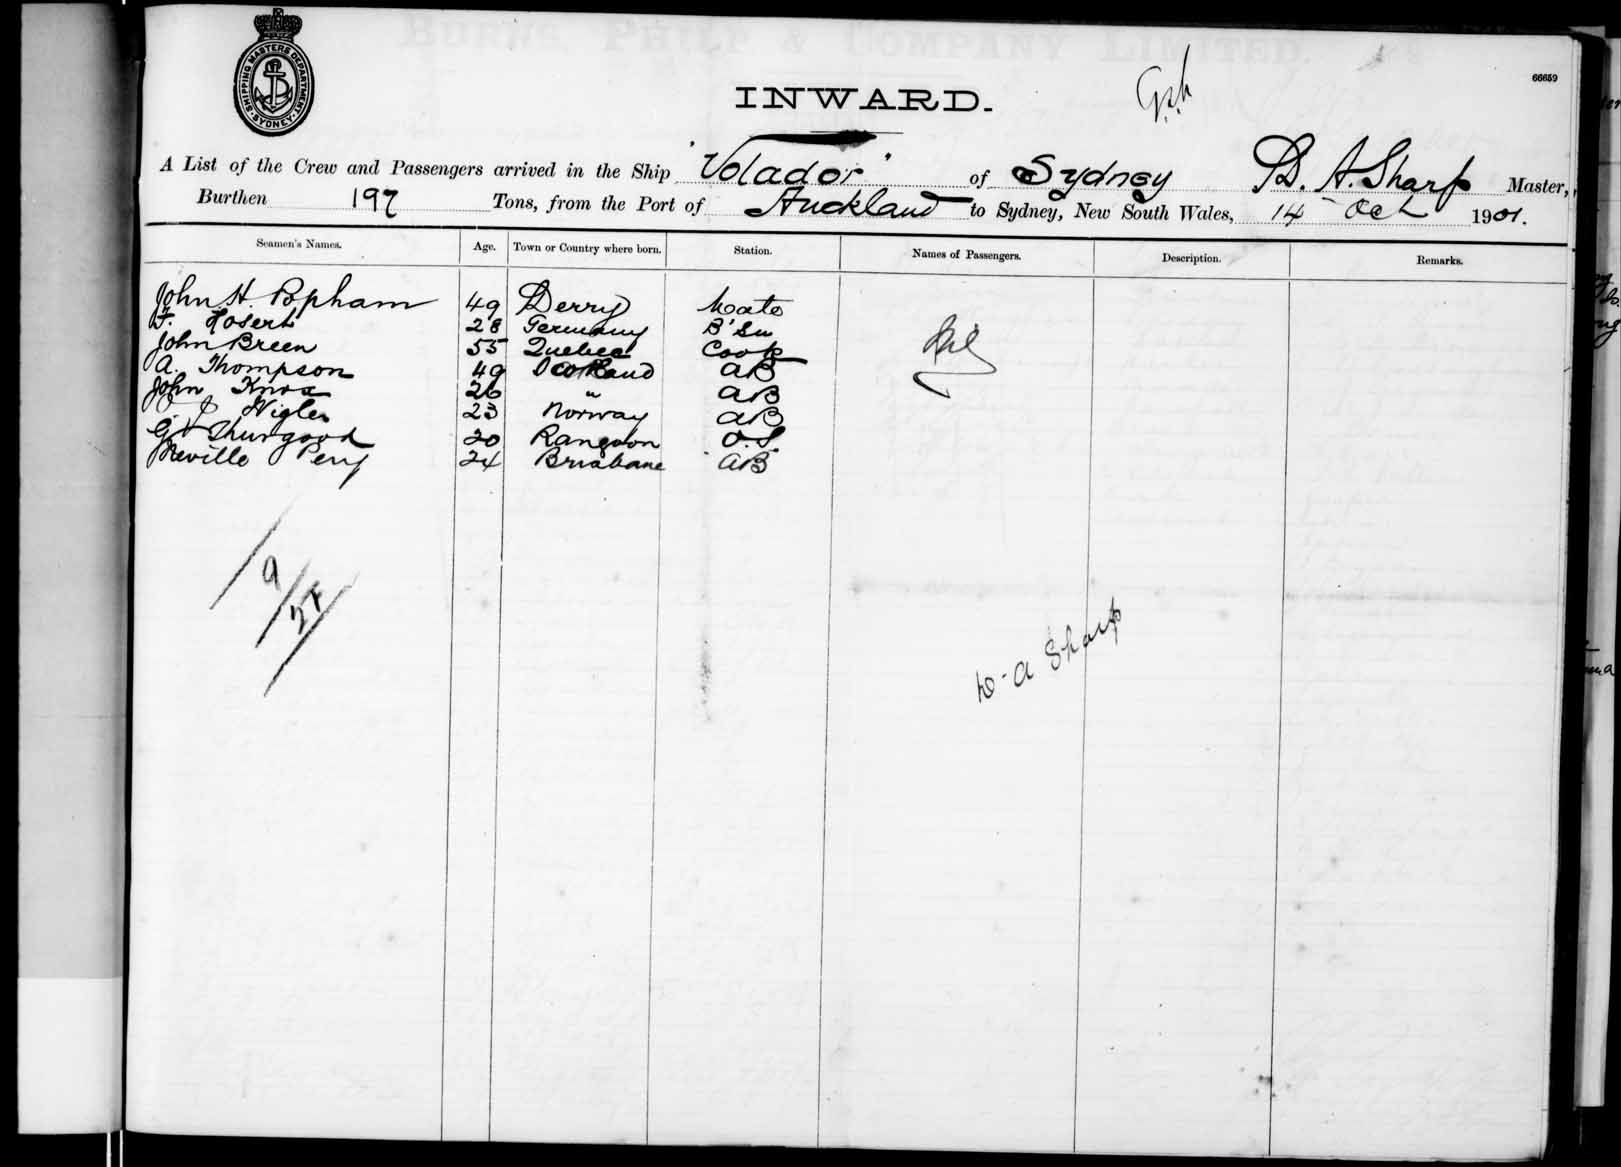 SHIPPING MASTERS DEPARTMENT
SYDNEY
66659
INWARD.
A List of the Crew and Passengers arrived in the Ship "Volador" of Sydney D. A. Sharp Master,
Burthen 197 Tons, from the Port of Auckland to Sydney, New South Wales, 14 Oct 1901.
Seamen's Names. Age. Town or Country where born. Station. Names of Passengers. Description. Remarks.
John H. Popham 49 Derry Mate
F. Losert 28 Germany B'Sn
John Breen 55 Quebec Cook
A. Thompson 49 Scotland AB
John Knox 26 " AB
23 Norway AB
Thurgood 20 Rangoon O.S
Neville Perry 24 Brisbane AB
Nil
9/
D-A Sharp